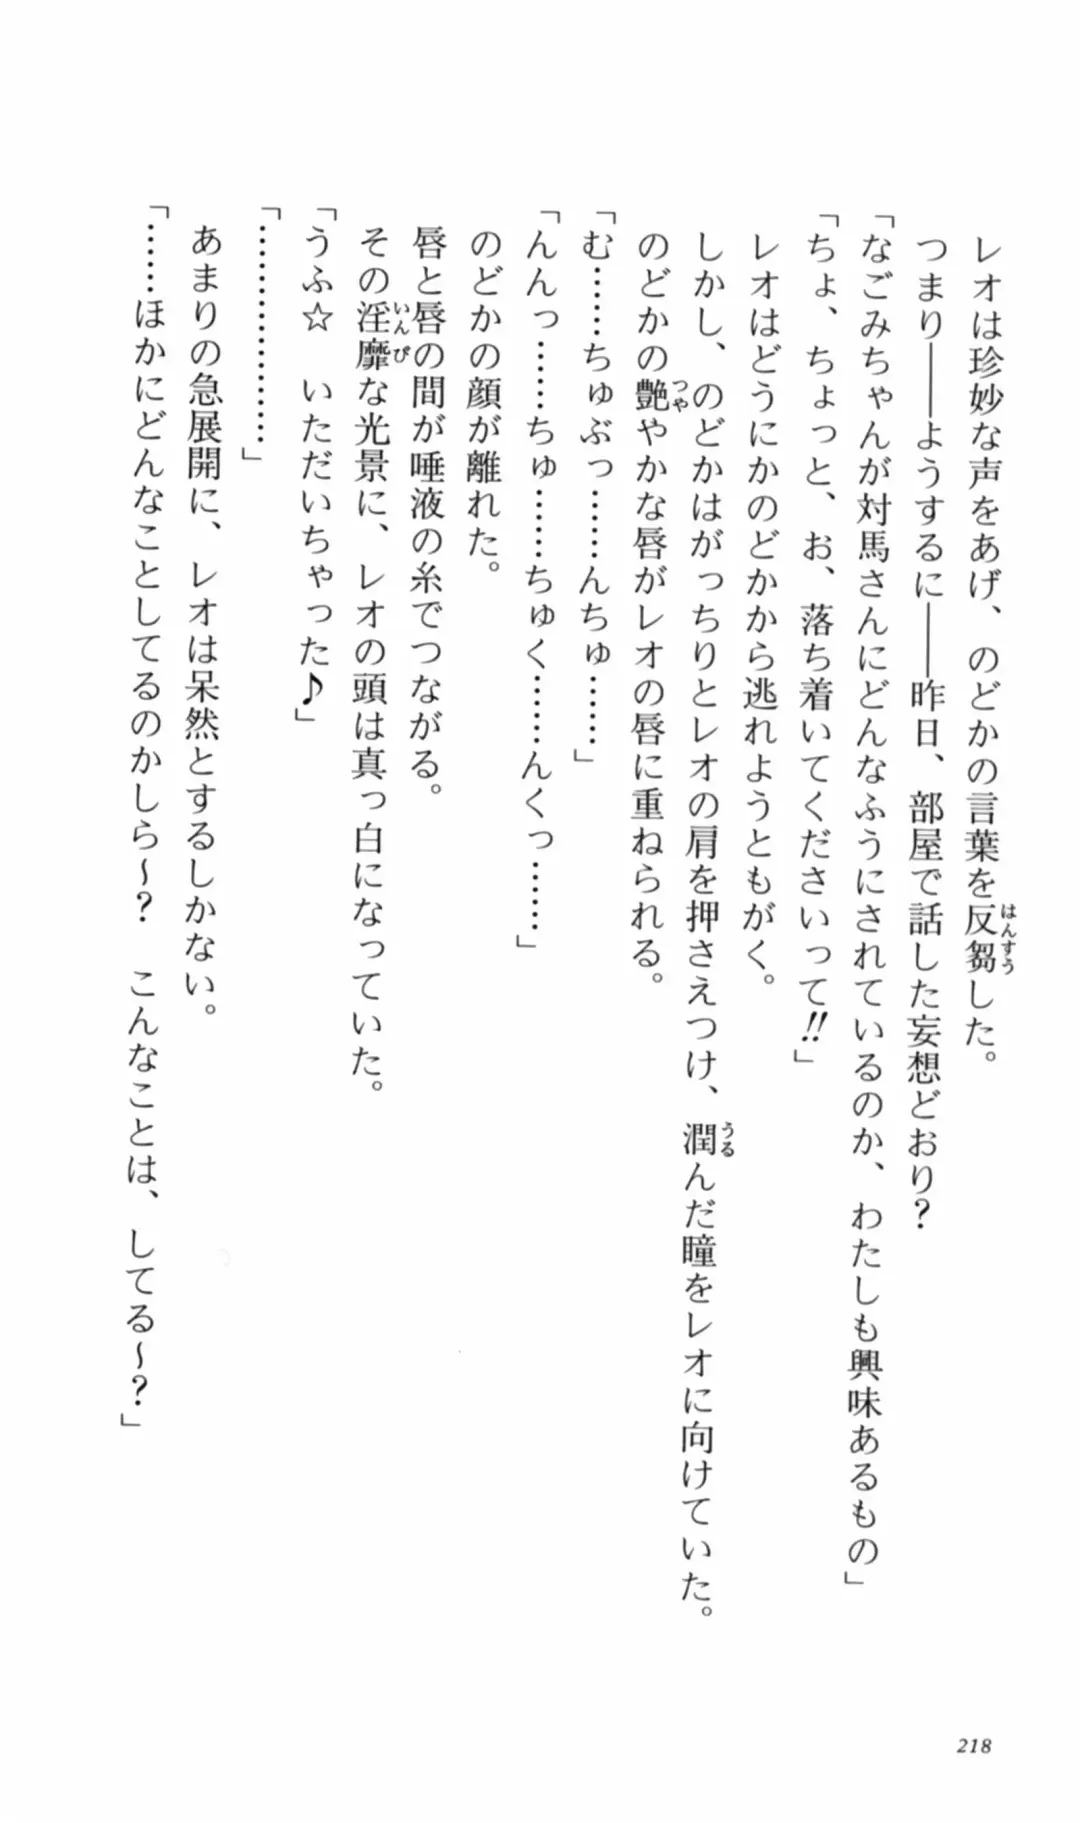 レオは珍妙な声をあげ、のどかの言葉を反芻した。
はんすう
つまり――ようするに――昨日、部屋で話した妄想どおり?
「なごみちゃんが対馬さんにどんなふうにされているのか、わたしも興味あるもの」
「ちょ、ちょっと、お、落ち着いてくださいって!!」
レオはどうにかのどかから逃れようともがく。
しかし、のどかはがっちりとレオの肩を押さえつけ、潤んだ瞳をレオに向けていた。
うる
のどかの艶やかな唇がレオの唇に重ねられる。
つや
「む……ちゅぶっ……んちゅ……」
「んんっ……ちゅ……ちゅく……んくっ……」
のどかの顔が離れた。
唇と唇の間が唾液の糸でつながる。
その淫靡な光景に、レオの頭は真っ白になっていた。
いんび
「うふ☆ いただいちゃった♪」
「………………」
あまりの急展開に、レオは呆然とするしかない。
「……ほかにどんなことしてるのかしら~? こんなことは、してる~?」
218